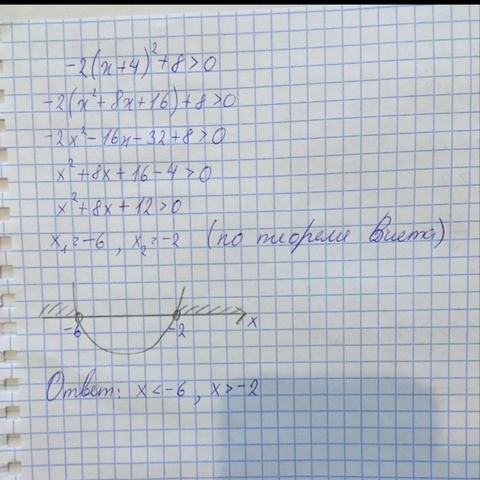 -2(x+4)²+8>0
-2(x²+8x+16)+8>0
-2x²-16x-32+8>0
x²+8x+16-4>0
x²+8x+12>0
x₁=-6, x₂=-2 (по теореме Виета)
-6 -2 x
Ответ: x<-6, x>-2